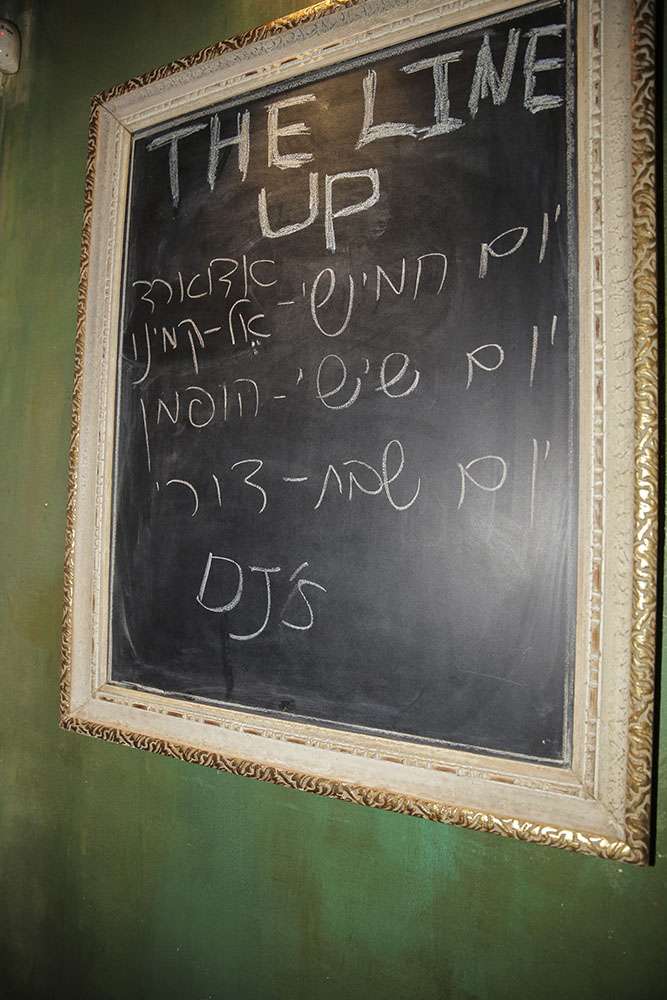 THE LINE
UP
יום חמישי - אדוארד
אל-קמינו
יום שישי - הופמן
יום שבת - דורי
DJ's